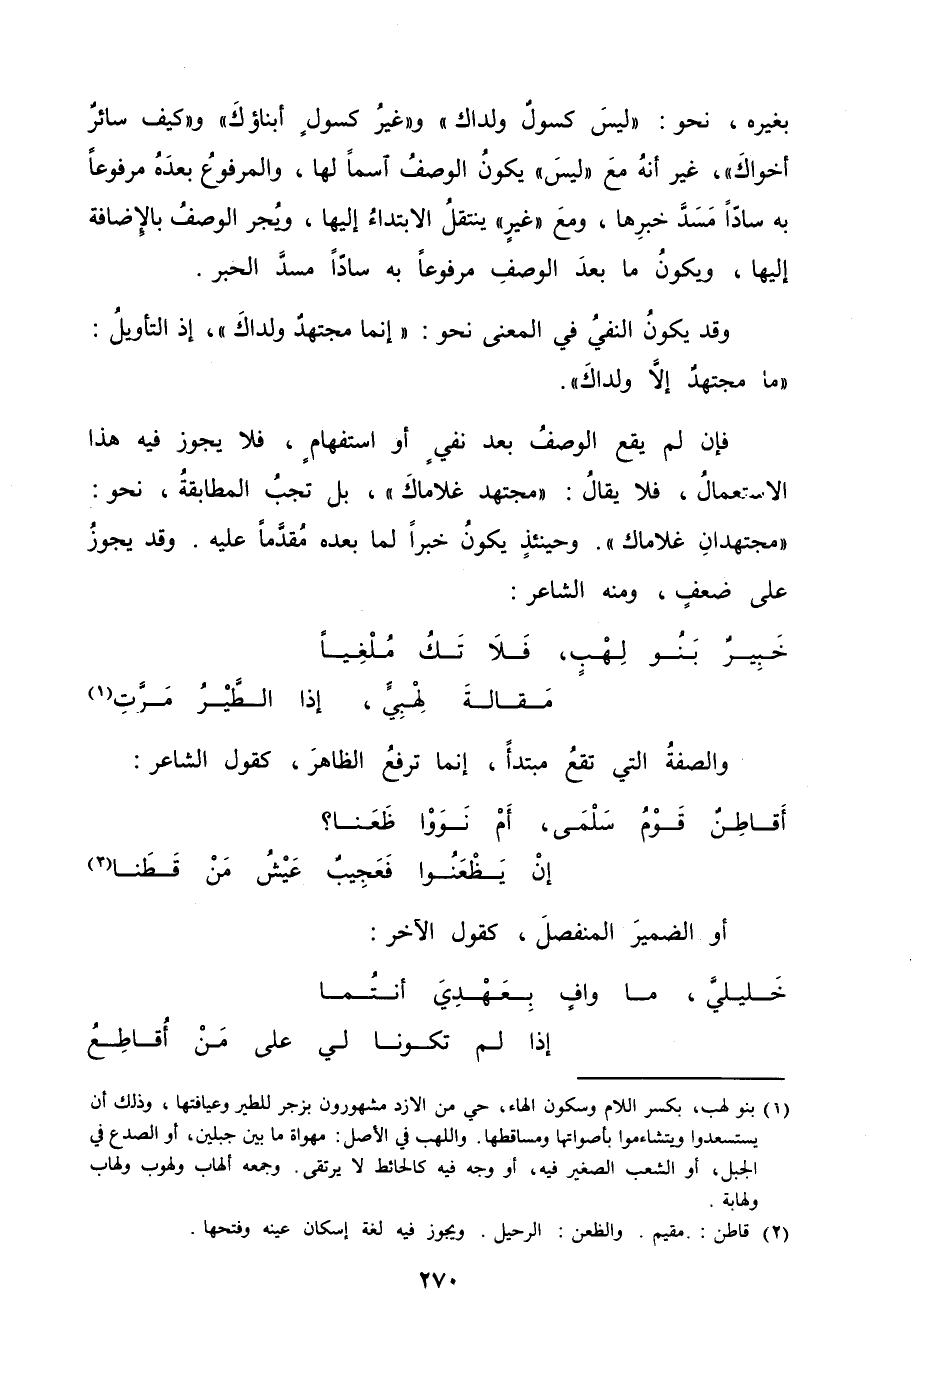 بغيره ، نحو : «ليسَ كسولٌ ولداك» و«غيرُ كسولٍ أبناؤكَ» و«كيف سائرٌ
أخواكَ»، غير أنهُ معَ «ليسَ» يكونُ الوصفُ آسماً لها ، والمرفوعُ بعدَهُ مرفوعاً
به سادّاً مَسَدَّ خبرِها ، ومعَ «غيرٍ» ينتقلُ الابتداءُ إليها ، ويُجر الوصفُ بالإضافة
إليها ، ويكونُ ما بعدَ الوصفِ مرفوعاً به سادّاً مسدَّ الخبر .
وقد يكونُ النفيُ في المعنى نحو : «إنما مجتهدٌ ولداكَ»، إذ التأويلُ :
«ما مجتهدٌ إلَّا ولداكَ».
فإن لم يقع الوصفُ بعد نفيٍ أو استفهامٍ ، فلا يجوز فيه هذا
الاستعمالُ ، فلا يقالُ : «مجتهد غلاماكَ» ، بل تجبُ المطابقةُ ، نحو :
«مجتهدانِ غلاماك». وحينئذٍ يكونُ خبراً لما بعده مُقدَّماً عليه . وقد يجوزُ
على ضعفٍ ، ومنه الشاعر :
خَبِيــرٌ بَنُــو لِهْـبٍ، فَـلَا تَـكُ مُـلْغِيـاً
مَـقـالـةَ لِهْبِيٍّ ، إذا الـطَّيْـرُ مَـرَّتِ(١)
والصفةُ التي تقعُ مبتدأً ، إنما ترفعُ الظاهرَ ، كقول الشاعر :
أَقـاطِـنٌ قَـوْمُ سَلْمَـى، أَمْ نَـوَوْا ظَعَنـا؟
إنْ يَـظْعَنُـوا فَعَجِيبٌ عَيْشُ مَنْ قَـطَنـا(٢)
أو الضميرَ المنفصلَ ، كقول الآخر :
خَـليليَّ ، مـا وافٍ بِـعَـهْـدِيَ أنـتُـمـا
إذا لـم تكـونـا لـي علـى مَـنْ أُقـاطِـعُ
(١) بنو لهب، بكسر اللام وسكون الهاء، حي من الازد مشهورون بزجر للطير وعيافتها ، وذلك أن
يستسعدوا ويتشاءموا بأصواتها ومساقطها. واللهب في الأصل : مهواة ما بين جبلين، أو الصدع في
الجبل، أو الشعب الصغير فيه، أو وجه فيه كالحائط لا يرتقى. وجمعه ألهاب ولهوب ولهاب
ولهابة .
(٢) قاطن : مقيم . والظعن : الرحيل . ويجوز فيه لغة إسكان عينه وفتحها .
٢٧٠